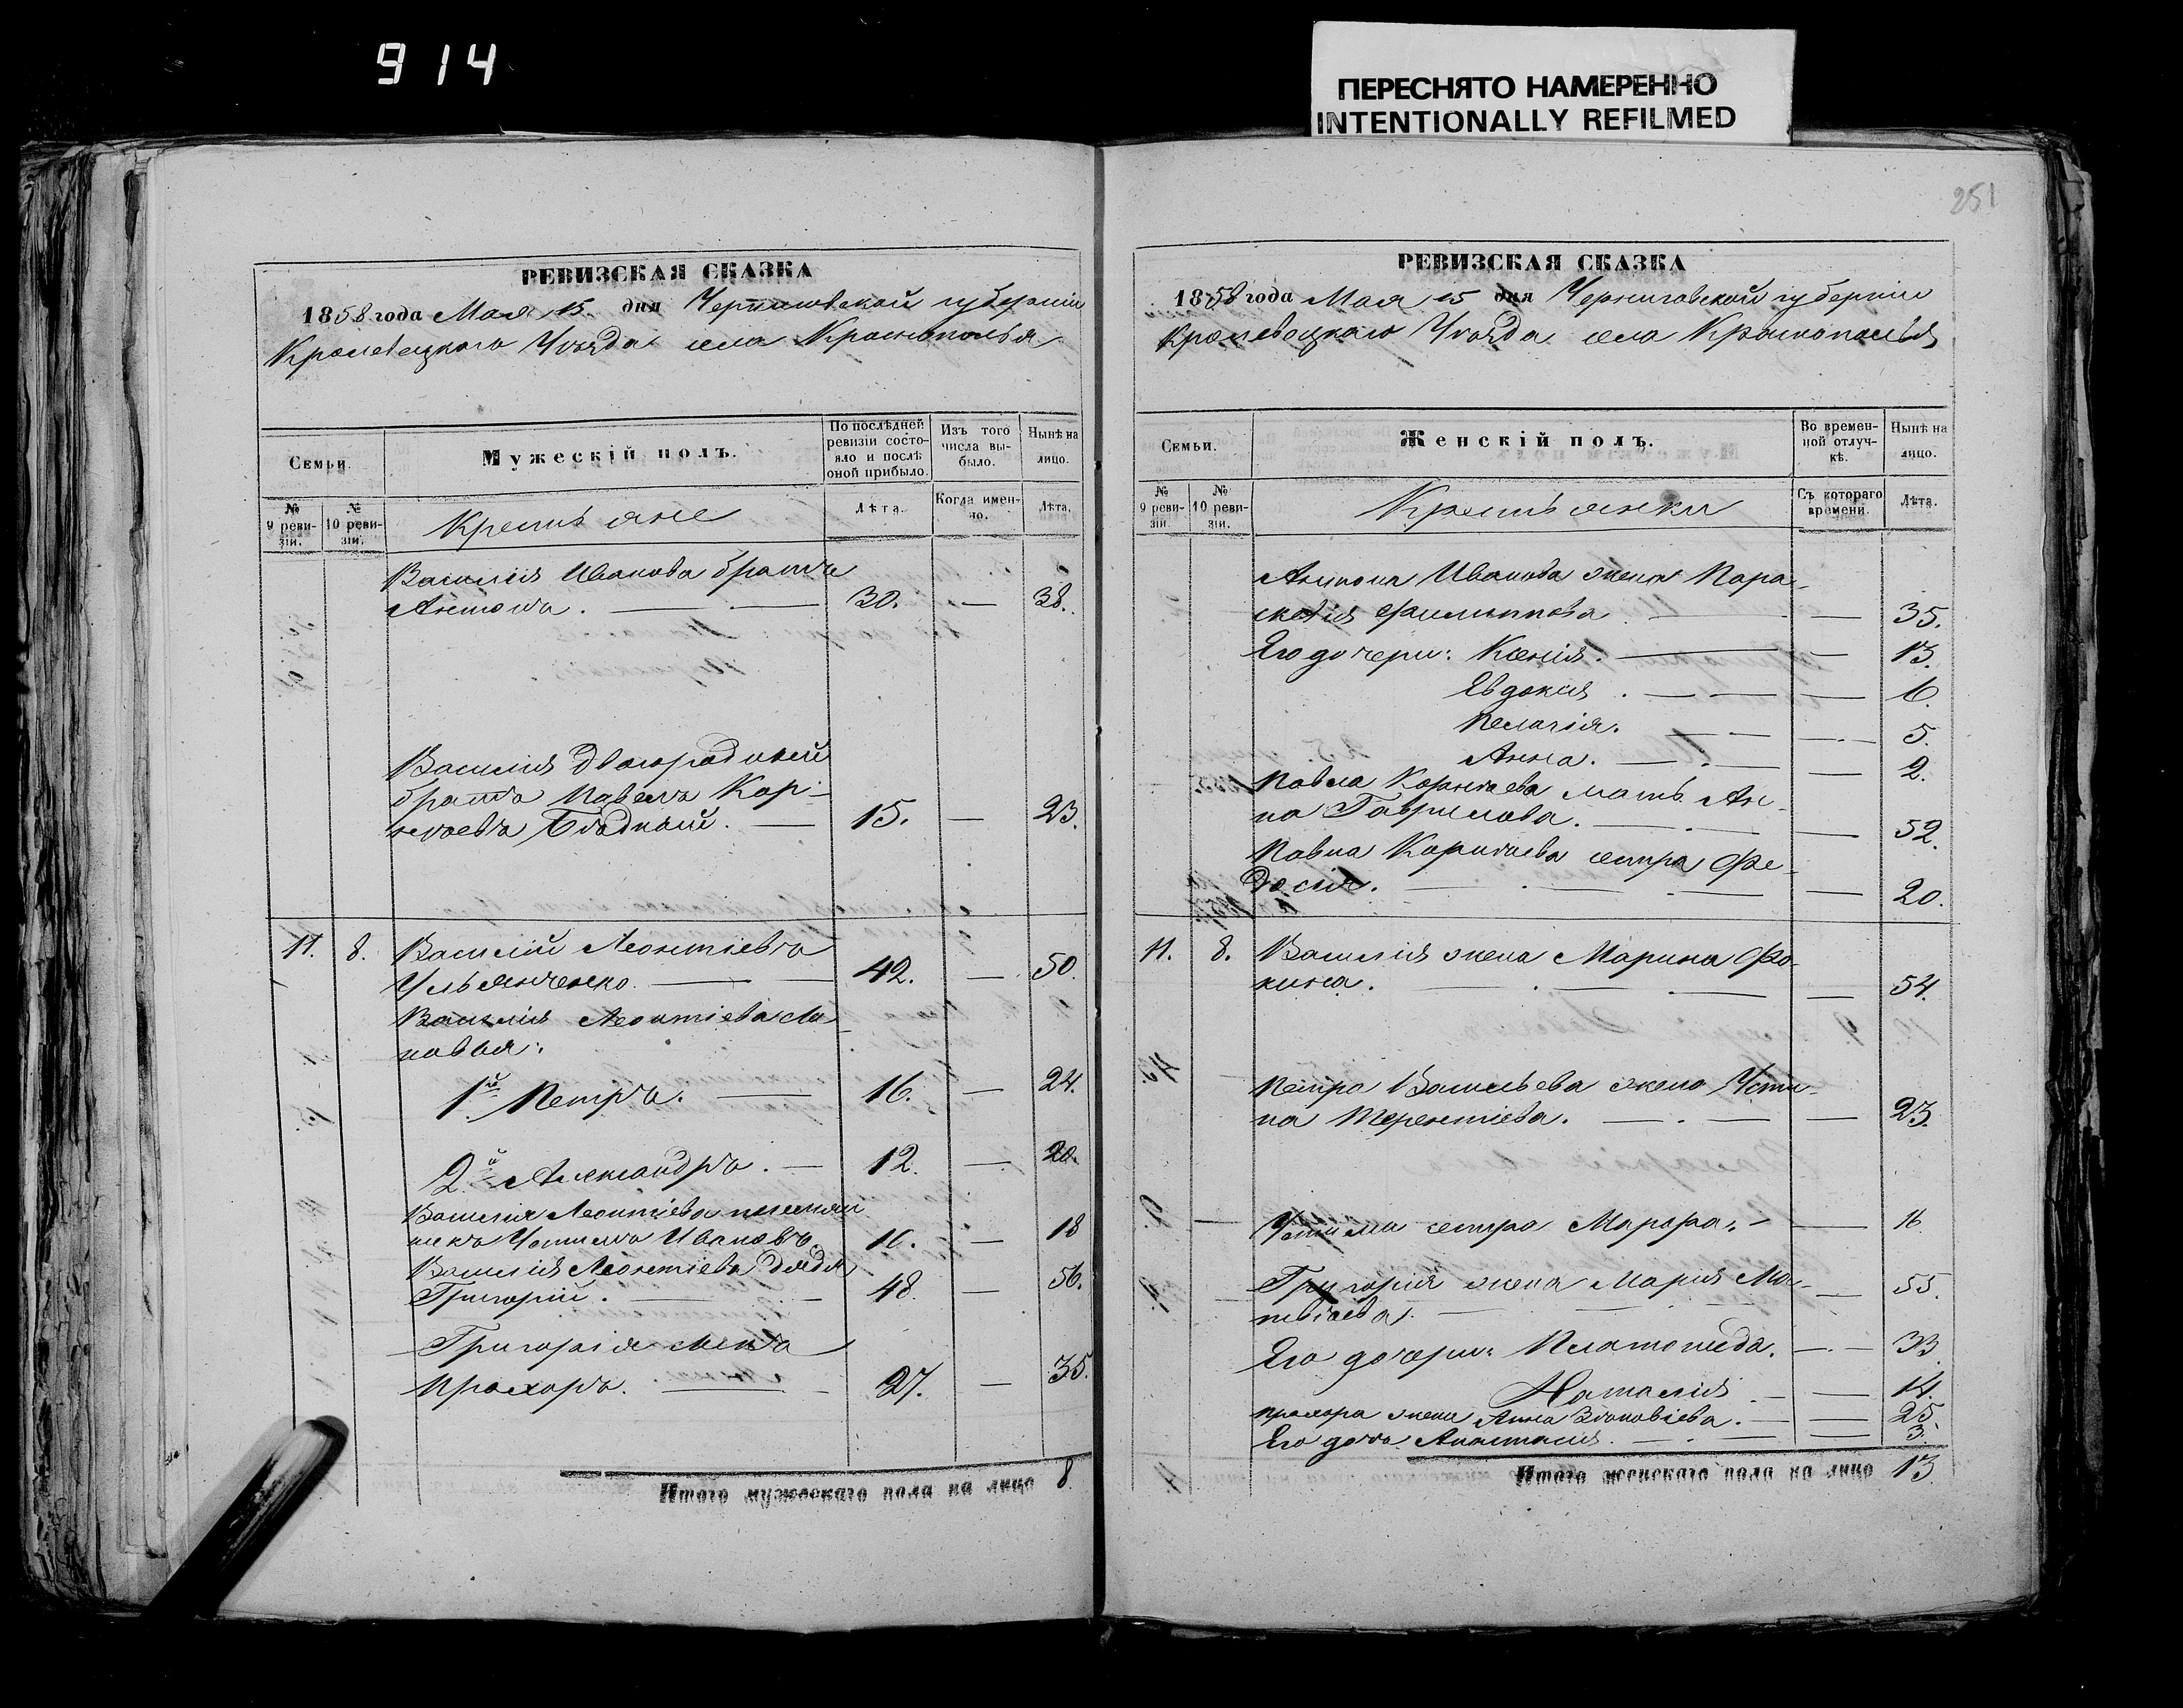 914
ПЕРЕСНЯТО НАМЕРЕННО
INTENTIONALLY REFILMED
РЕВИЗСКАЯ СКАЗКА
1858 года Мая 15 дня Черниговской губерніи
Кролевецкаго Уѣзда села Краснополья
Семьи.
Мужескій полъ.
По послѣдней
ревизіи состо-
яло и послѣ
оной прибыло.
Изъ того
числа вы-
было.
Нынѣ на
лицо.
№
9 реви-
зіи.
№
10 реви-
зіи.
Крестьяне
Лѣта.
Когда имен-
но.
Лѣта.
Василія Иванова братъ
Антонъ. 30. — 38.
Василія двоюродный
братъ Павелъ Кор-
нѣевъ Бѣдный. 15. — 23.
11. 8. Василій Леонтіевъ
Ульянченко. 42. — 50.
Василія Леонтіева сы
новья:
1й Петръ. 16. — 24.
2й Александръ. 12. — 20.
Василія Леонтіева племян
никъ Устимъ Ивановъ. 10. — 18
Василія Леонтіева дядя
Григорій. 48. — 56.
Григорія сынъ
Прохоръ. 27. — 35.
Итого мужескаго пола на лицо 8.
251
РЕВИЗСКАЯ СКАЗКА
1858 года Мая 15 дня Черниговской губерніи
Кролевецкаго Уѣзда села Краснополья
Семьи.
Женскій полъ.
Во времен-
ной отлуч-
кѣ.
Нынѣ на
лицо.
№
9 реви-
зіи.
№
10 реви-
зіи.
Крестьянки
Съ котораго
времени.
Лѣта.
Антона Иванова жена Пара-
скевія Филиппова — 35.
Его дочери: Ксенія. — 13.
Евдокія. — 6.
Пелагія. — 5.
Анна. — 2.
Павла Корнѣева мать Ан-
на Гаврилова. — 52.
Павла Корнѣева сестра Фе-
досія. — 20.
11. 8. Василія жена Марина Фо-
кина. — 54.
Петра Васильева жена Усти-
на Терентіева. — 23.
Устима сестра Марфа. — 16
Григорія жена Марія Мат-
вѣева. — 55.
Его дочери: Платонида. — 33.
Наталія — 14.
Прохора жена Анна Зѣновіева. — 25.
Его дочь Анастасія. — 3.
Итого женскаго пола на лицо 13.